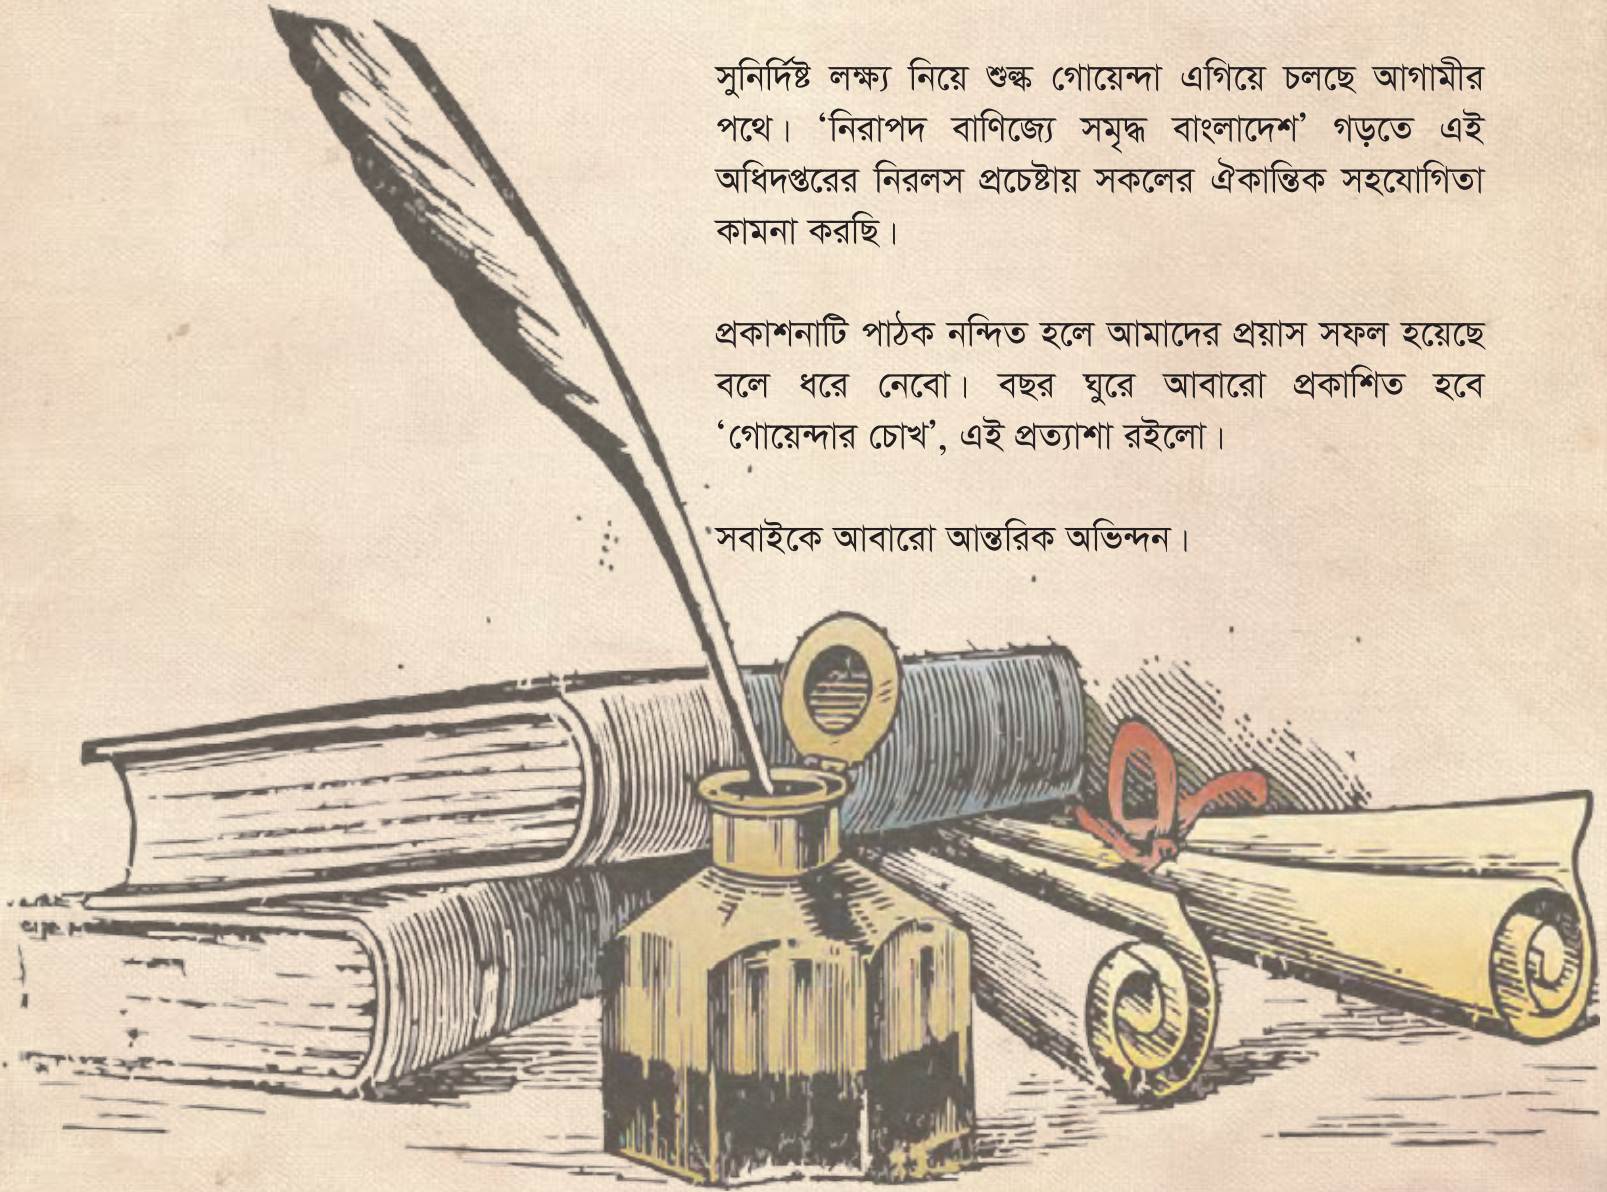 সুনির্দিষ্ট লক্ষ্য নিয়ে শুল্ক গোয়েন্দা এগিয়ে চলছে আগামীর
পথে। ‘নিরাপদ বাণিজ্যে সমৃদ্ধ বাংলাদেশ’ গড়তে এই
অধিদপ্তরের নিরলস প্রচেষ্টায় সকলের ঐকান্তিক সহযোগিতা
কামনা করছি।
প্রকাশনাটি পাঠক নন্দিত হলে আমাদের প্রয়াস সফল হয়েছে
বলে ধরে নেবো। বছর ঘুরে আবারো প্রকাশিত হবে
‘গোয়েন্দার চোখ’, এই প্রত্যাশা রইলো।
সবাইকে আবারো আন্তরিক অভিন্দন।